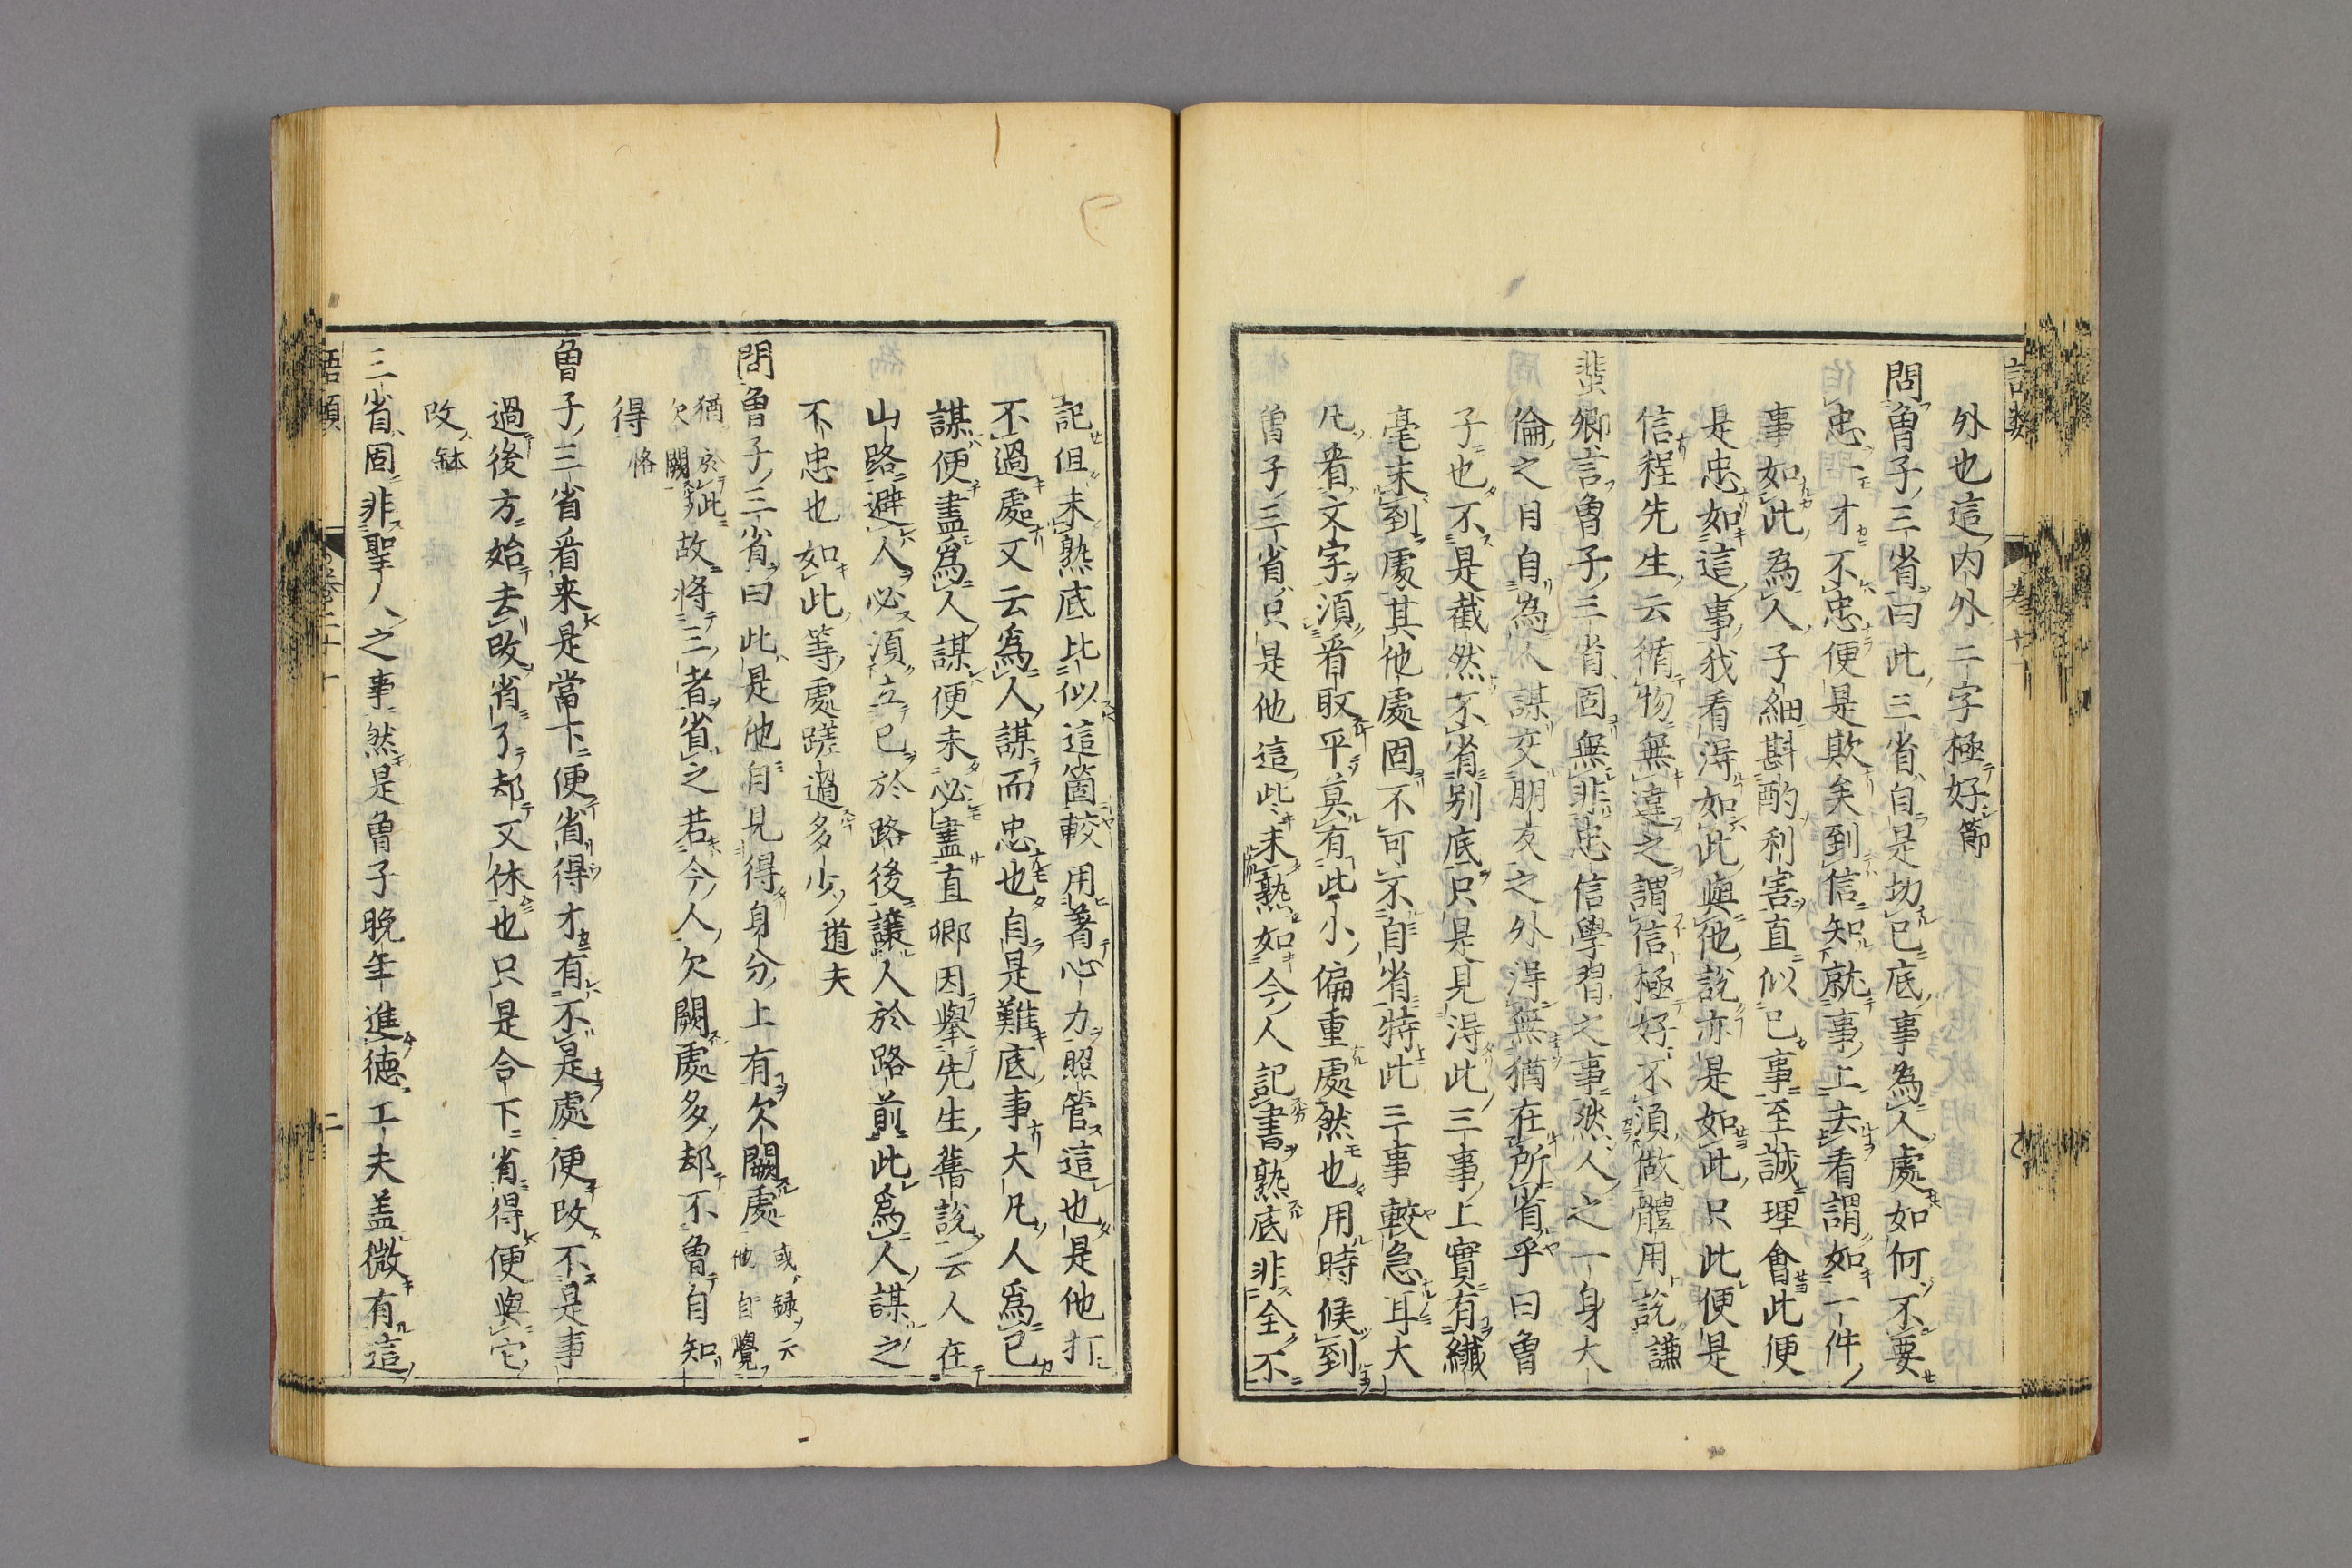 外也這内外二字極好節
問曾子三省曰此三省自是切己底事為人處如何不要
忠一才不忠便是欺矣到信知就事上去看謂如一件
事如此為人子細斟酌利害直似己事至誠理會此便
是忠如這事我看得如此與他說亦是如此只此便是
信程先生云循物無違之謂信極好不須做體用說謙
蜚卿言曾子三省固無非忠信學習之事然人之一身大
倫之目自為人謀交朋友之外得無猶在所省乎曰曾
子也不是截然不省别底只是見得此三事上實有纎
毫未到處其他處固不可不自省特此三事較急耳大
凡看文字須看取平莫有此小偏重處然也用時候到
曾子三省只是他這此未熟如今人記書熟底非全不
記但未熟底比似這箇較用著心力照管這也是他打
不過處又云爲人謀而忠也自是難底事大凡人爲己
謀便盡爲人謀便未必盡直卿因舉先生舊說云人在
山路避人必須立己於路後讓人於路前此爲人謀之
不忠也如此等處蹉過多少道夫
問曾子三省曰此是他自見得身分上有欠闕處或錄云他自覺
猶於此欠闕故將三者省之若今人欠闕處多却不曾自知
得恪
曾子三省看來是當下便省得才有不是處便改不是事
過後方始去改省了却又休也只是合下省得便與它
改銖
三省固非聖人之事然是曾子晩年進德工夫盖微有這